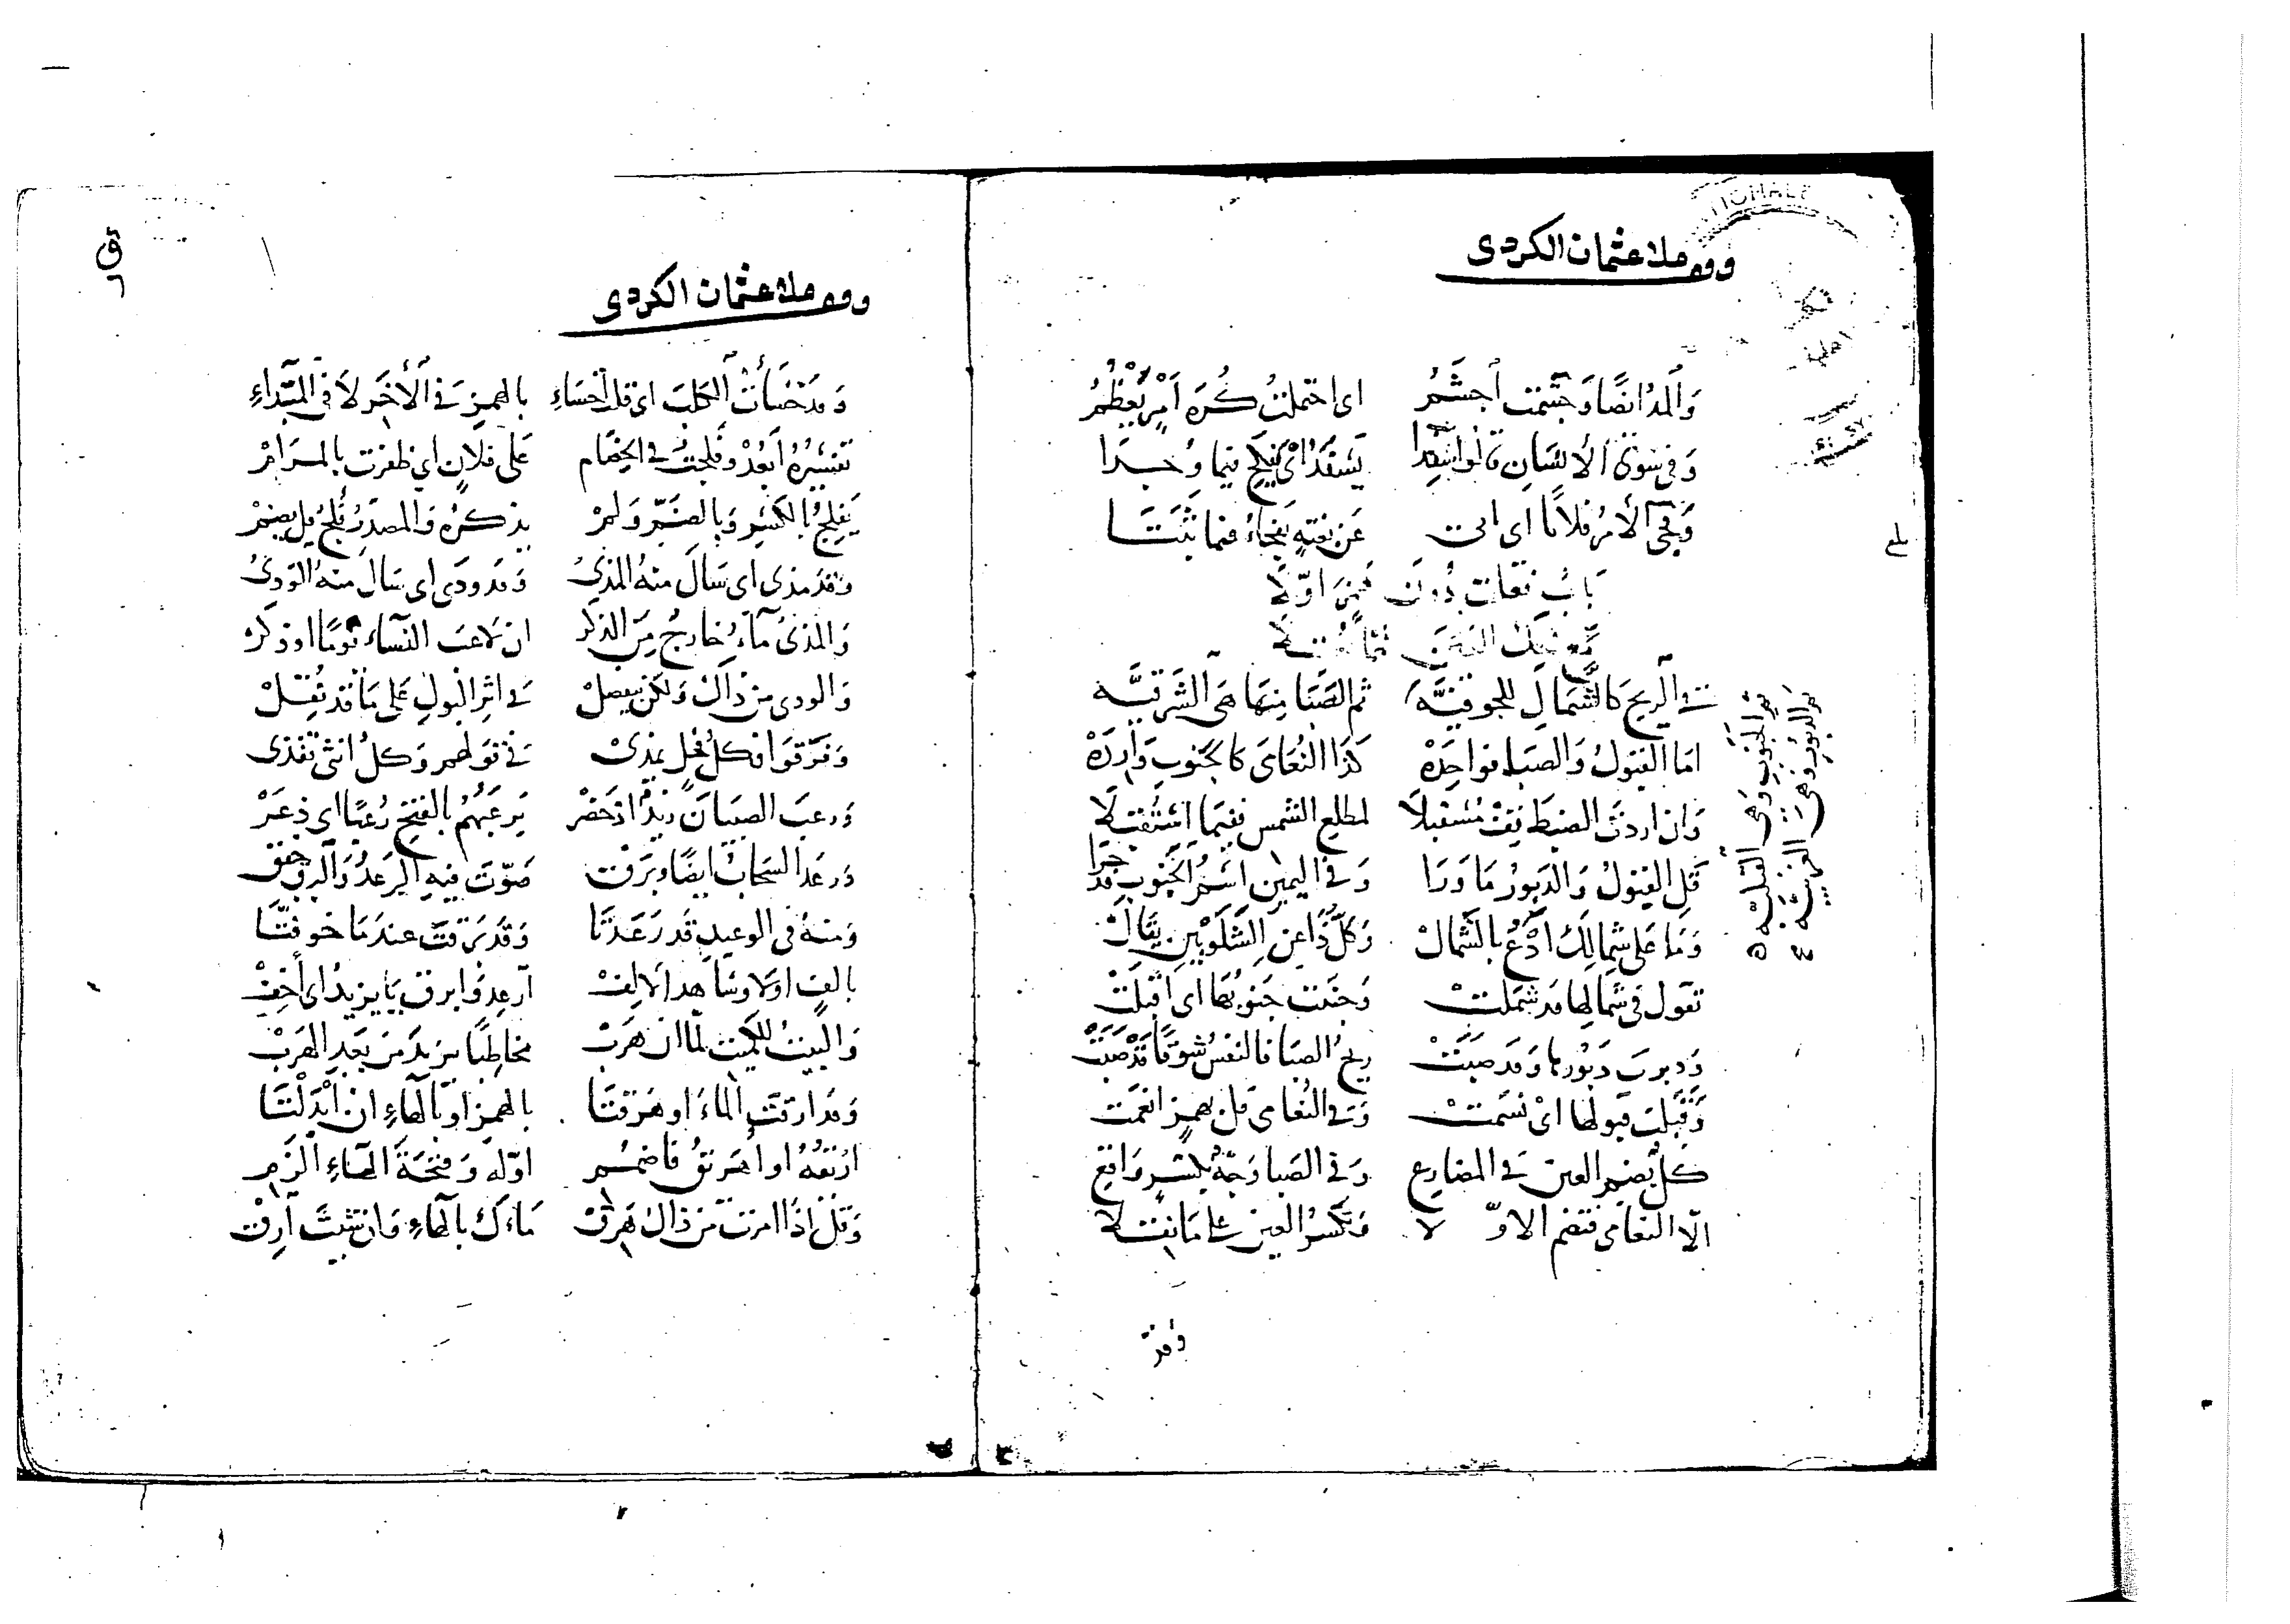 وقف ملا عثمان الكردى
وَالمدُ ايضًا وَجَشمت أجشَمُ اى احتملتُ كُرَه أمْرٍ يَعْظُمُ
وَفى سوَى الانسَانِ قالوا يَسْفِدُ اىْ يَنكح فيما وُجِدا
وَفجئ الامرُ فلانًا اى اتى عَن بغتةٍ يَفجاءُ فيما ثبَتَا
بَابُ فَعَلت بدُونَ
فى الريح كالشَمالِ للجوفيَّه ثم الصَبَا منهَا هىَ الشَرقيَّه
امَا القبَولُ وَالصبا فواحِدَهْ كَذا النُعَامَى كالجنوبِ وَارِدَهْ
وَان اردتَ الضبَطَ قِفْ مُسْتقبلاَ لمطلع الشمس ففيمَا
قَبل القبَولُ وَالدَبورُ مَا وَرَا وَفى اليمين اسْمُ الجَنوبِ قد جَرا
وَمَا عَلى شمالِكَ ادْعُ بالشَمالْ وَكلُّ ذَا عن الشَلَوْبِين يقَالْ
تقول فى شمَالِها قد شَمَلتْ وَجَنبَت جَنوبُهَا اى اقبَلَتْ
وَدبرت دَبُورها وَقد صَبَتْ ريحُ الصبَا فالنفسُ شوقًا قَدْ صَبَتْ
وَقَبَلت قبولها اىْ نسَمتْ وَفى النُعَامى قل بهمزٍ انعَمَت
كلٌ بضم العين فى المضارع وَفى الصَبا وَجْهٌ بكسرٍ وَاقع
الاّ النعامى فتضم الاوّلا وَتكسرُ العين على مَا نقلا
ثم الجَنوبِ وَهى القبليّه
ثم الدَبورِ وَهىَ الغربيّه
بلغ
وقد
وقف ملا عثمان الكردى
وَقد خَسَأتُ الكلبَ اى قلتُ اخسَاءِ بالهمزِ فى الأخَرِ لاَ فى المبتَداءِ
تفسيَرُهُ ابَعُدْ وفلجتُ فى الخِصَام عَلى فلانٍ اى ظفرت بالمَرَامْ
يَفلِجُ بالكسرِ وَبالضَمّ وَلمْ يذكرُه وَالمصدَرُ فُلجُ بل بضمْ
وَقد مذى اى سَالَ منهُ المذىُ وَقد ودَى اى سَالَ منهُ الوَدىُ
وَالمذىُ مَاءٌ خَارجٌ مِنَ الذكر ان لاَعبَ النسَاء يَومًا او ذكرْ
وَالودى من ذَاك وَلكن يَفصلْ فى اثِر البَولِ عَلى مَا قد نُقِلْ
وَفرّقوا فكلُّ فحلٍ يمذىْ فى قولهم وَكلُّ انثى تقذى
وَرعَبَ الصبيَان زيدٌ اذ حَضْر يَرعَبُهُم بالفتح رُعبًا اى ذعَرْ
وَرعَد السَحَابُ ايضًا وَبرَقت صَوّتَ فيهِ الرعدُ وَالبرق خفق
وَمنهُ فى الوعيدِ قَد رَعَدتَا وَقد بَرقتَ عندَمَا خوفتَا
بالفٍ اولا وشَاهد الالِفْ ارعِدْ وَابرق يَا يزيدُ اى أخِفْ
وَالبيتُ للكميت لمّا ان هَرَبْ مخاطِبًا يزيدَ من بَعدِ الهَرَبْ
وَقد ارقتَ المَاءَ او هَرَقتَا بالهمز او بَالهاءِ ان ابدَلتَا
ارُيقهُ او أهَريقُ فاضمُم اوّلهَ وَفتحَةَ الهَاءِ الزَمِ
وَقل اذَا امرتَ من ذَاك هَرِقْ مَاءَكَ بالهَاءِ وَان شئتَ ارِقْ